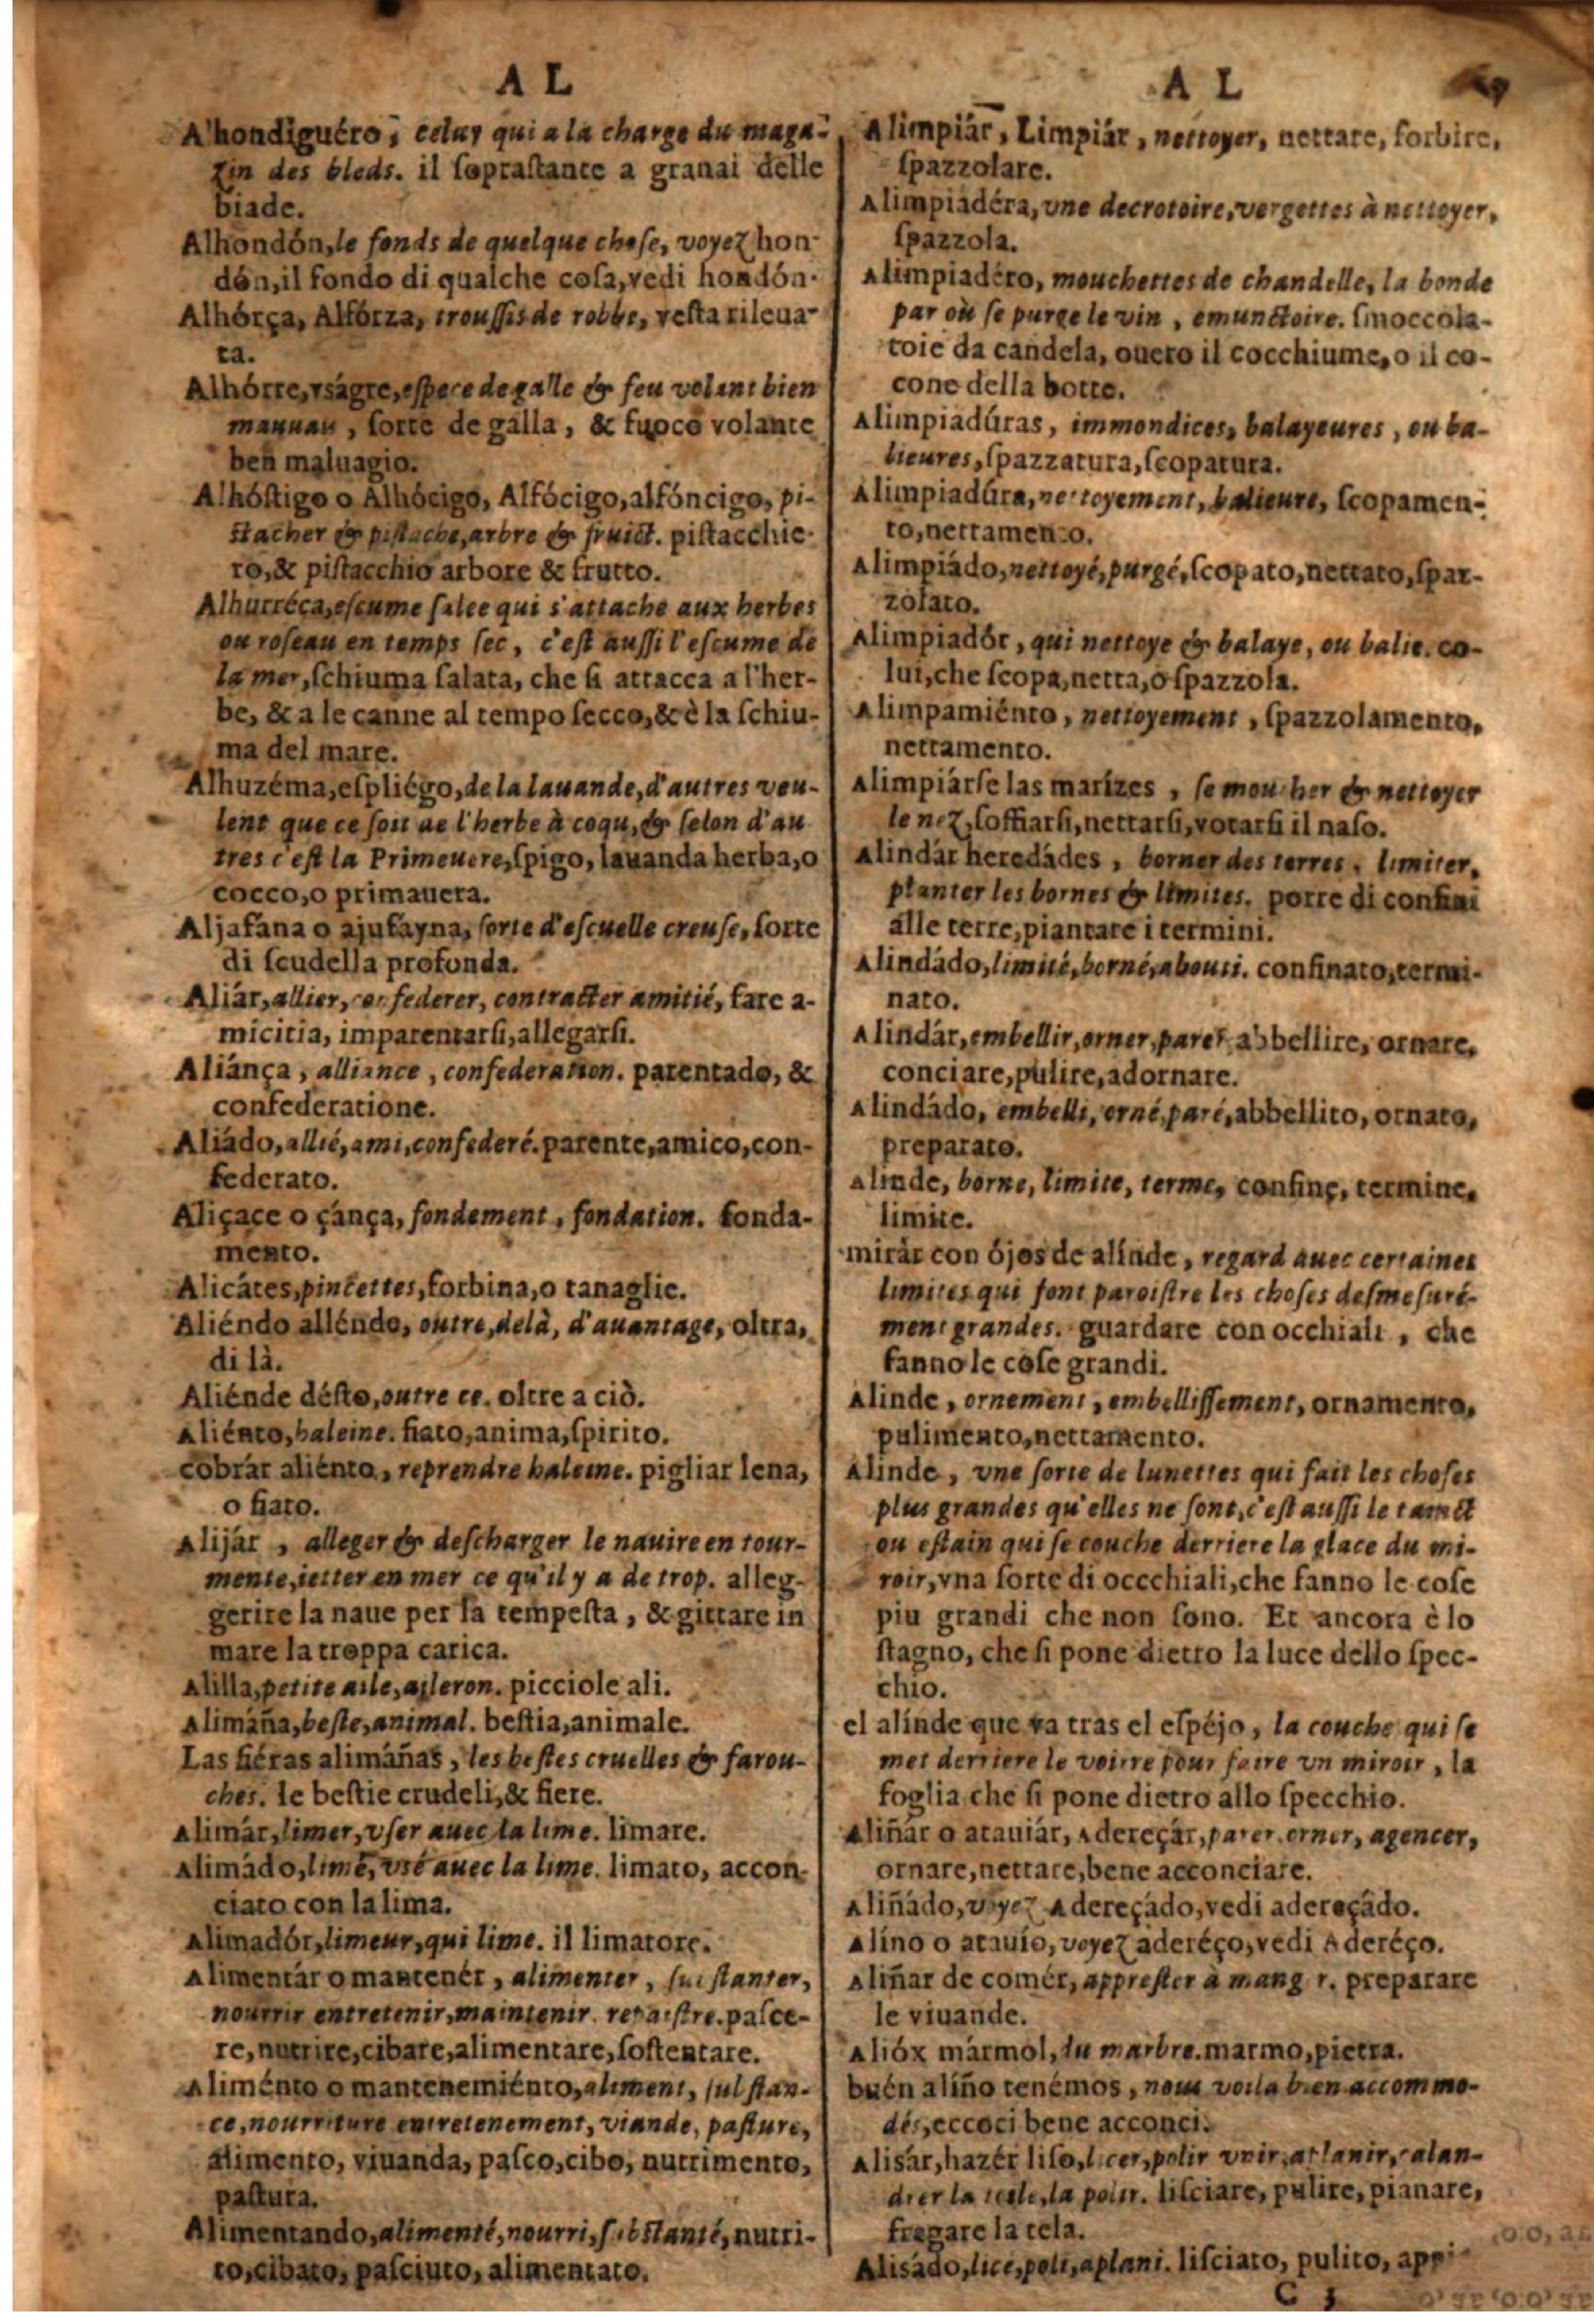 A L
Alhondiguéro, celuy qui a la charge du maga-
zin des bleds. il soprastante a granai delle
biade.
Alhondón, le fonds de quelque chose, voyez hon-
dón, il fondo di qualche cosa, vedi hondón.
Alhórça, Alfórza, troussis de robbe, vesta rileua-
ta.
Alhórre, vságre, espece de galle & feu volant bien
mauuau, sorte de galla, & fuoco volante
ben maluagio.
Alhóstigo o Alhócigo, Alfócigo, alfóncigo, pi-
stacher & pistache, arbre & fruict. pistacchie-
ro, & pistacchio arbore & frutto.
Alhurréca, escume salee qui s'attache aux herbes
ou roseau en temps sec, c'est aussi l'escume de
la mer, schiuma salata, che si attacca a l'her-
be, & a le canne al tempo secco, & è la schiu-
ma del mare.
Alhuzéma, espliégo, de la lauande, d'autres veu-
lent que ce soit de l'herbe à coqu, & selon d'au
tres c'est la Primeuere, spigo, lauanda herba, o
cocco, o primauera.
Aljafana o ajufayna, sorte d'escuelle creuse, sorte
di scudella profonda.
Aliár, allier, confederer, contracter amitié, fare a-
micitia, imparentarsi, allegarsi.
Aliánça, alliance, confederation. parentado, &
confederatione.
Aliádo, allié, ami, confederé. parente, amico, con-
federato.
Aliçace o çánça, fondement, fondation. fonda-
mento.
Alicátes, pincettes, forbina, o tanaglie.
Aliéndo alléndo, outre, delà, d'auantage, oltra,
di là.
Aliénde désto, outre ce. oltre a ciò.
Aliénto, haleine. fiato, anima, spirito.
cobrár aliénto, reprendre haleine. pigliar lena,
o fiato.
Alijár, alleger & descharger le nauire en tour-
mente, ietter en mer ce qu'il y a de trop. alleg-
gerire la naue per la tempesta, & gittare in
mare la troppa carica.
Alilla, petite aile, aileron. picciole ali.
Alimáña, beste, animal. bestia, animale.
Las fiéras alimáñas, les bestes cruelles & farou-
ches. le bestie crudeli, & fiere.
Alimár, limer, vser auec la lime. limare.
Alimádo, limé, vsé auec la lime. limato, accon-
ciato con la lima.
Alimadór, limeur, qui lime. il limatore.
Alimentár o mantenér, alimenter, sustanter,
nourrir entretenir, maintenir. repaistre. pasce-
re, nutrire, cibare, alimentare, sostentare.
Aliménto o mantenemiénto, aliment, substan-
ce, nourriture entretenement, viande, pasture,
alimento, viuanda, pasco, cibo, nutrimento,
pastura.
Alimentando, alimenté, nourri, substanté, nutri-
to, cibato, pasciuto, alimentato.
A L
Alimpiár, Limpiár, nettoyer, nettare, forbire,
spazzolare.
Alimpiadéra, vne decrotoire, vergettes à nettoyer,
spazzola.
Alimpiadéro, mouchettes de chandelle, la bonde
par où se purge le vin, emunctoire. smoccola-
toie da candela, ouero il cocchiume, o il co-
cone della botte.
Alimpiadúras, immondices, balayeures, ou ba-
lieures, spazzatura, scopatura.
Alimpiadúra, nettoyement, balieure, scopamen-
to, nettamento.
Alimpiádo, nettoyé, purgé, scopato, nettato, spaz-
zolato.
Alimpiadór, qui nettoye & balaye, ou balie. co-
lui, che scopa, netta, o spazzola.
Alimpamiénto, nettoyement, spazzolamento,
nettamento.
Alimpiárse las marízes, se moucher & nettoyer
le nez, soffiarsi, nettarsi, votarsi il naso.
Alindár heredádes, borner des terres, limiter,
planter les bornes & limites. porre di confini
alle terre, piantare i termini.
Alindádo, limité, borné, abouti. confinato, termi-
nato.
Alindár, embellir, orner, parer abbellire, ornare,
conciare, pulire, adornare.
Alindádo, embelli, orné, paré, abbellito, ornato,
preparato.
Alinde, borne, limite, terme, confine, termine,
limite.
mirár con ójos de alínde, regard auec certaines
limites qui font paroistre les choses desmesuré-
ment grandes. guardare con occhiali, che
fanno le cose grandi.
Alinde, ornement, embellissement, ornamento,
pulimento, nettamento.
Alinde, vne sorte de lunettes qui fait les choses
plus grandes qu'elles ne sont, c'est aussi le tainct
ou estain qui se couche derriere la glace du mi-
roir, vna sorte di occchiali, che fanno le cose
piu grandi che non sono. Et ancora è lo
stagno, che si pone dietro la luce dello spec-
chio.
el alínde que va tras el espéjo, la couche qui se
met derriere le voirre pour faire vn miroir, la
foglia che si pone dietro allo specchio.
Aliñár o atauiár, Adereçár, parer. orner, agencer,
ornare, nettare, bene acconciare.
Aliñádo, voyez Adereçádo, vedi adereçádo.
Alíno o atauío, voyez aderéço, vedi Aderéço.
Aliñar de comér, apprester à manger. preparare
le viuande.
Alióx mármol, du marbre. marmo, pietra.
buén alíño tenémos, nous voila bien accommo-
dés, eccoci bene acconci.
Alisár, hazér liso, licer, polir vnir, applanir, calan-
drer la toile, la polir. lisciare, pulire, pianare,
fregare la tela.
Alisádo, licé, poli, aplani. lisciato, pulito, appi-
C 3